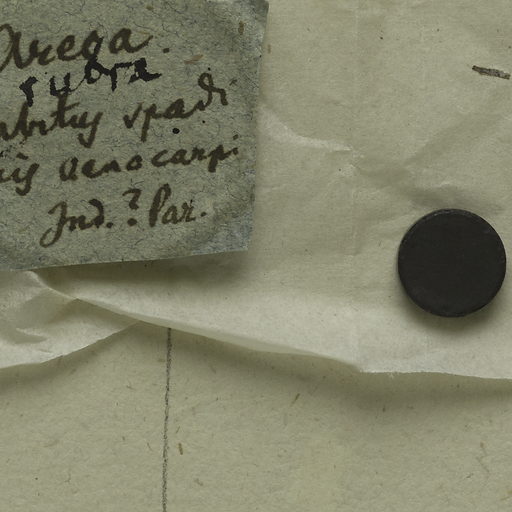 Areca.
rubra
habitus spadi
cis oenocarpi
Ind.? Par.